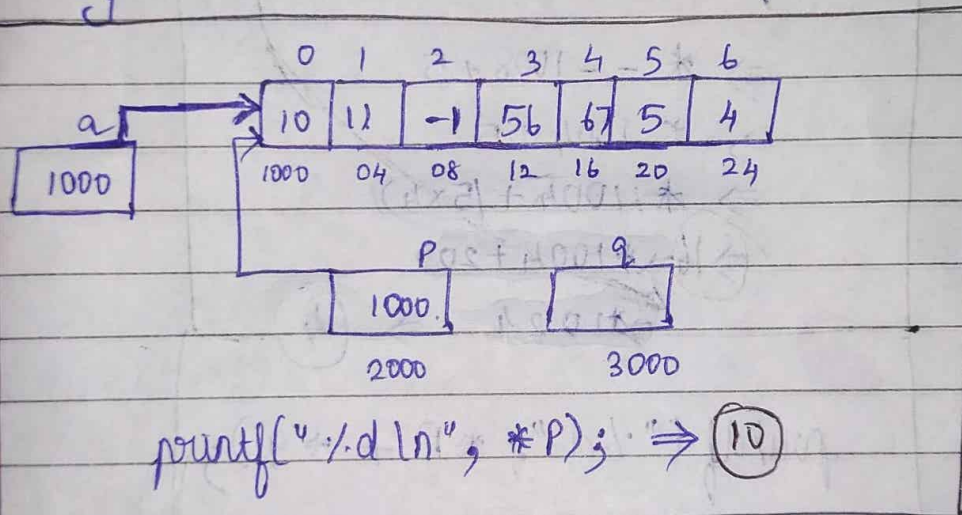 0 1 2 3 4 5 6
a
10 11 -1 56 67 5 4
1000
1000 04 08 12 16 20 24
p q
1000.
2000 3000
printf("%d\n", *p); ⇒ 10